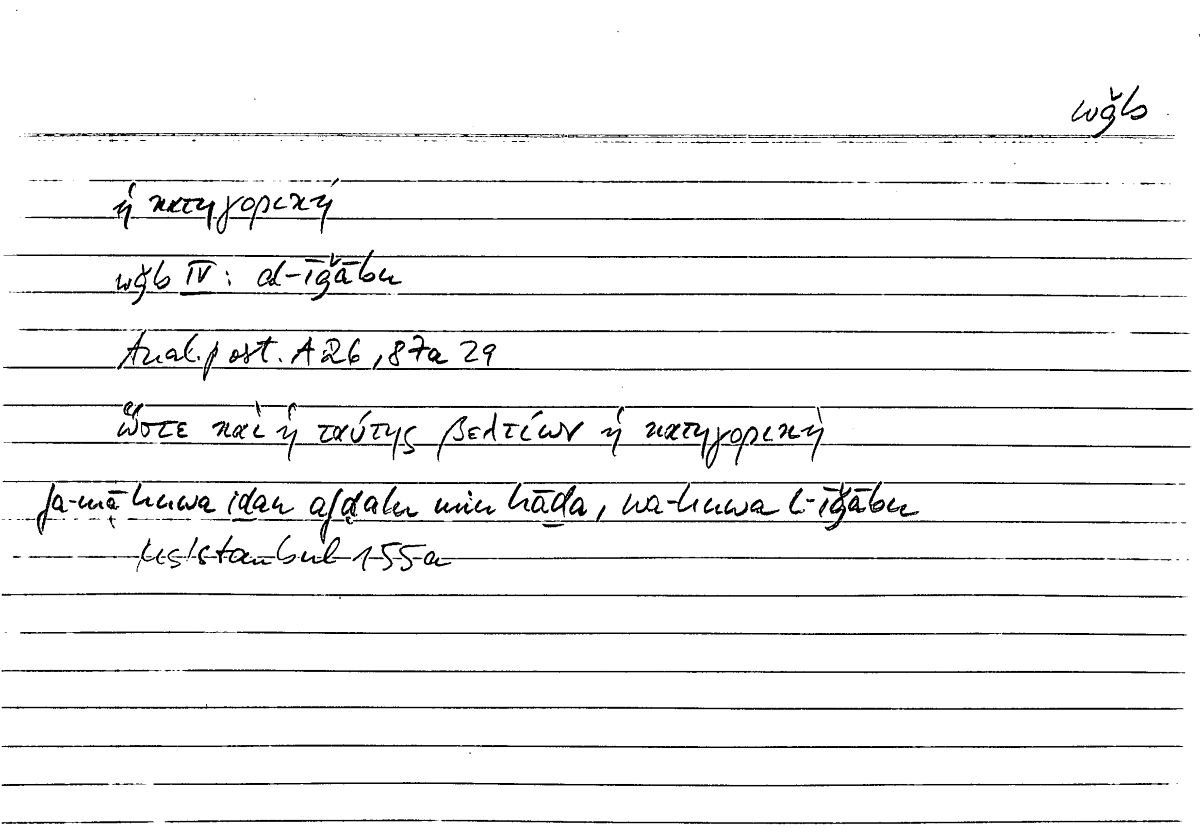 wǧb
ἡ κατηγορική
wǧb IV: al-īǧābu
Anal. post. A 26, 87a 29
ὥστε καὶ ἡ ταύτης βελτίων ἡ κατηγορικὴ
fa-mā huwa iḏan afḍalu min hāḏa, wa-huwa l-īǧābu
Ms Istanbul 155a